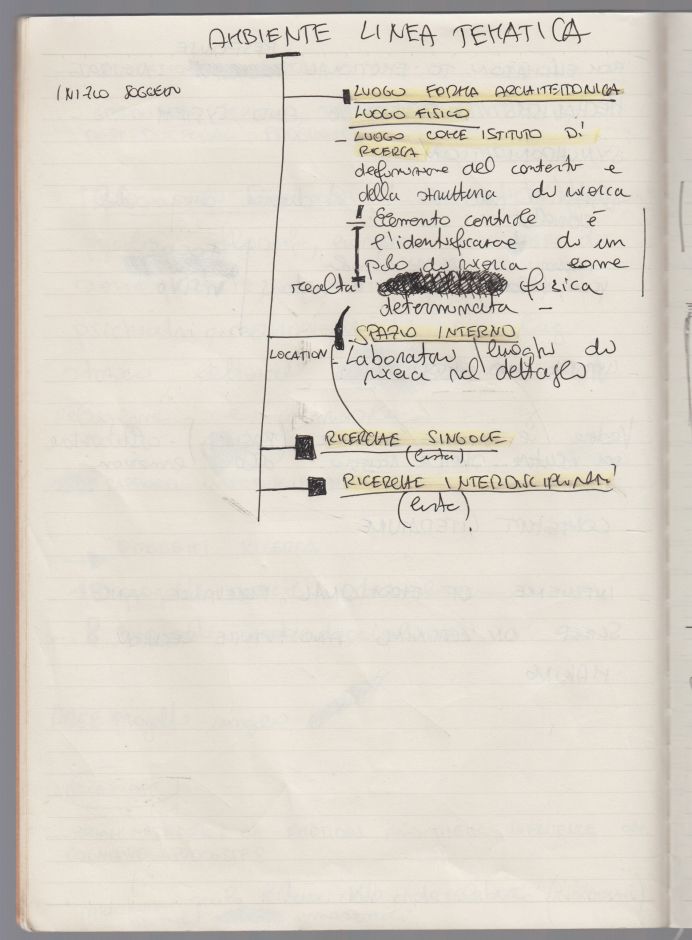 AMBIENTE LINEA TEMATICA
INIZIO SOGGETTO
LUOGO FORMA ARCHITETTONICA
LUOGO FISICO
- LUOGO COME ISTITUTO DI
RICERCA
definizione del contesto e
della struttura di ricerca
Elemento controllo è
l'identificazione di un
polo di ricerca come
realtà fisica
determinata -
SPAZIO INTERNO
LOCATION
- Laboratori luoghi di
ricerca nel dettaglio
RICERCHE SINGOLE
(lista)
RICERCHE INTERDISCIPLINARI
(lista)